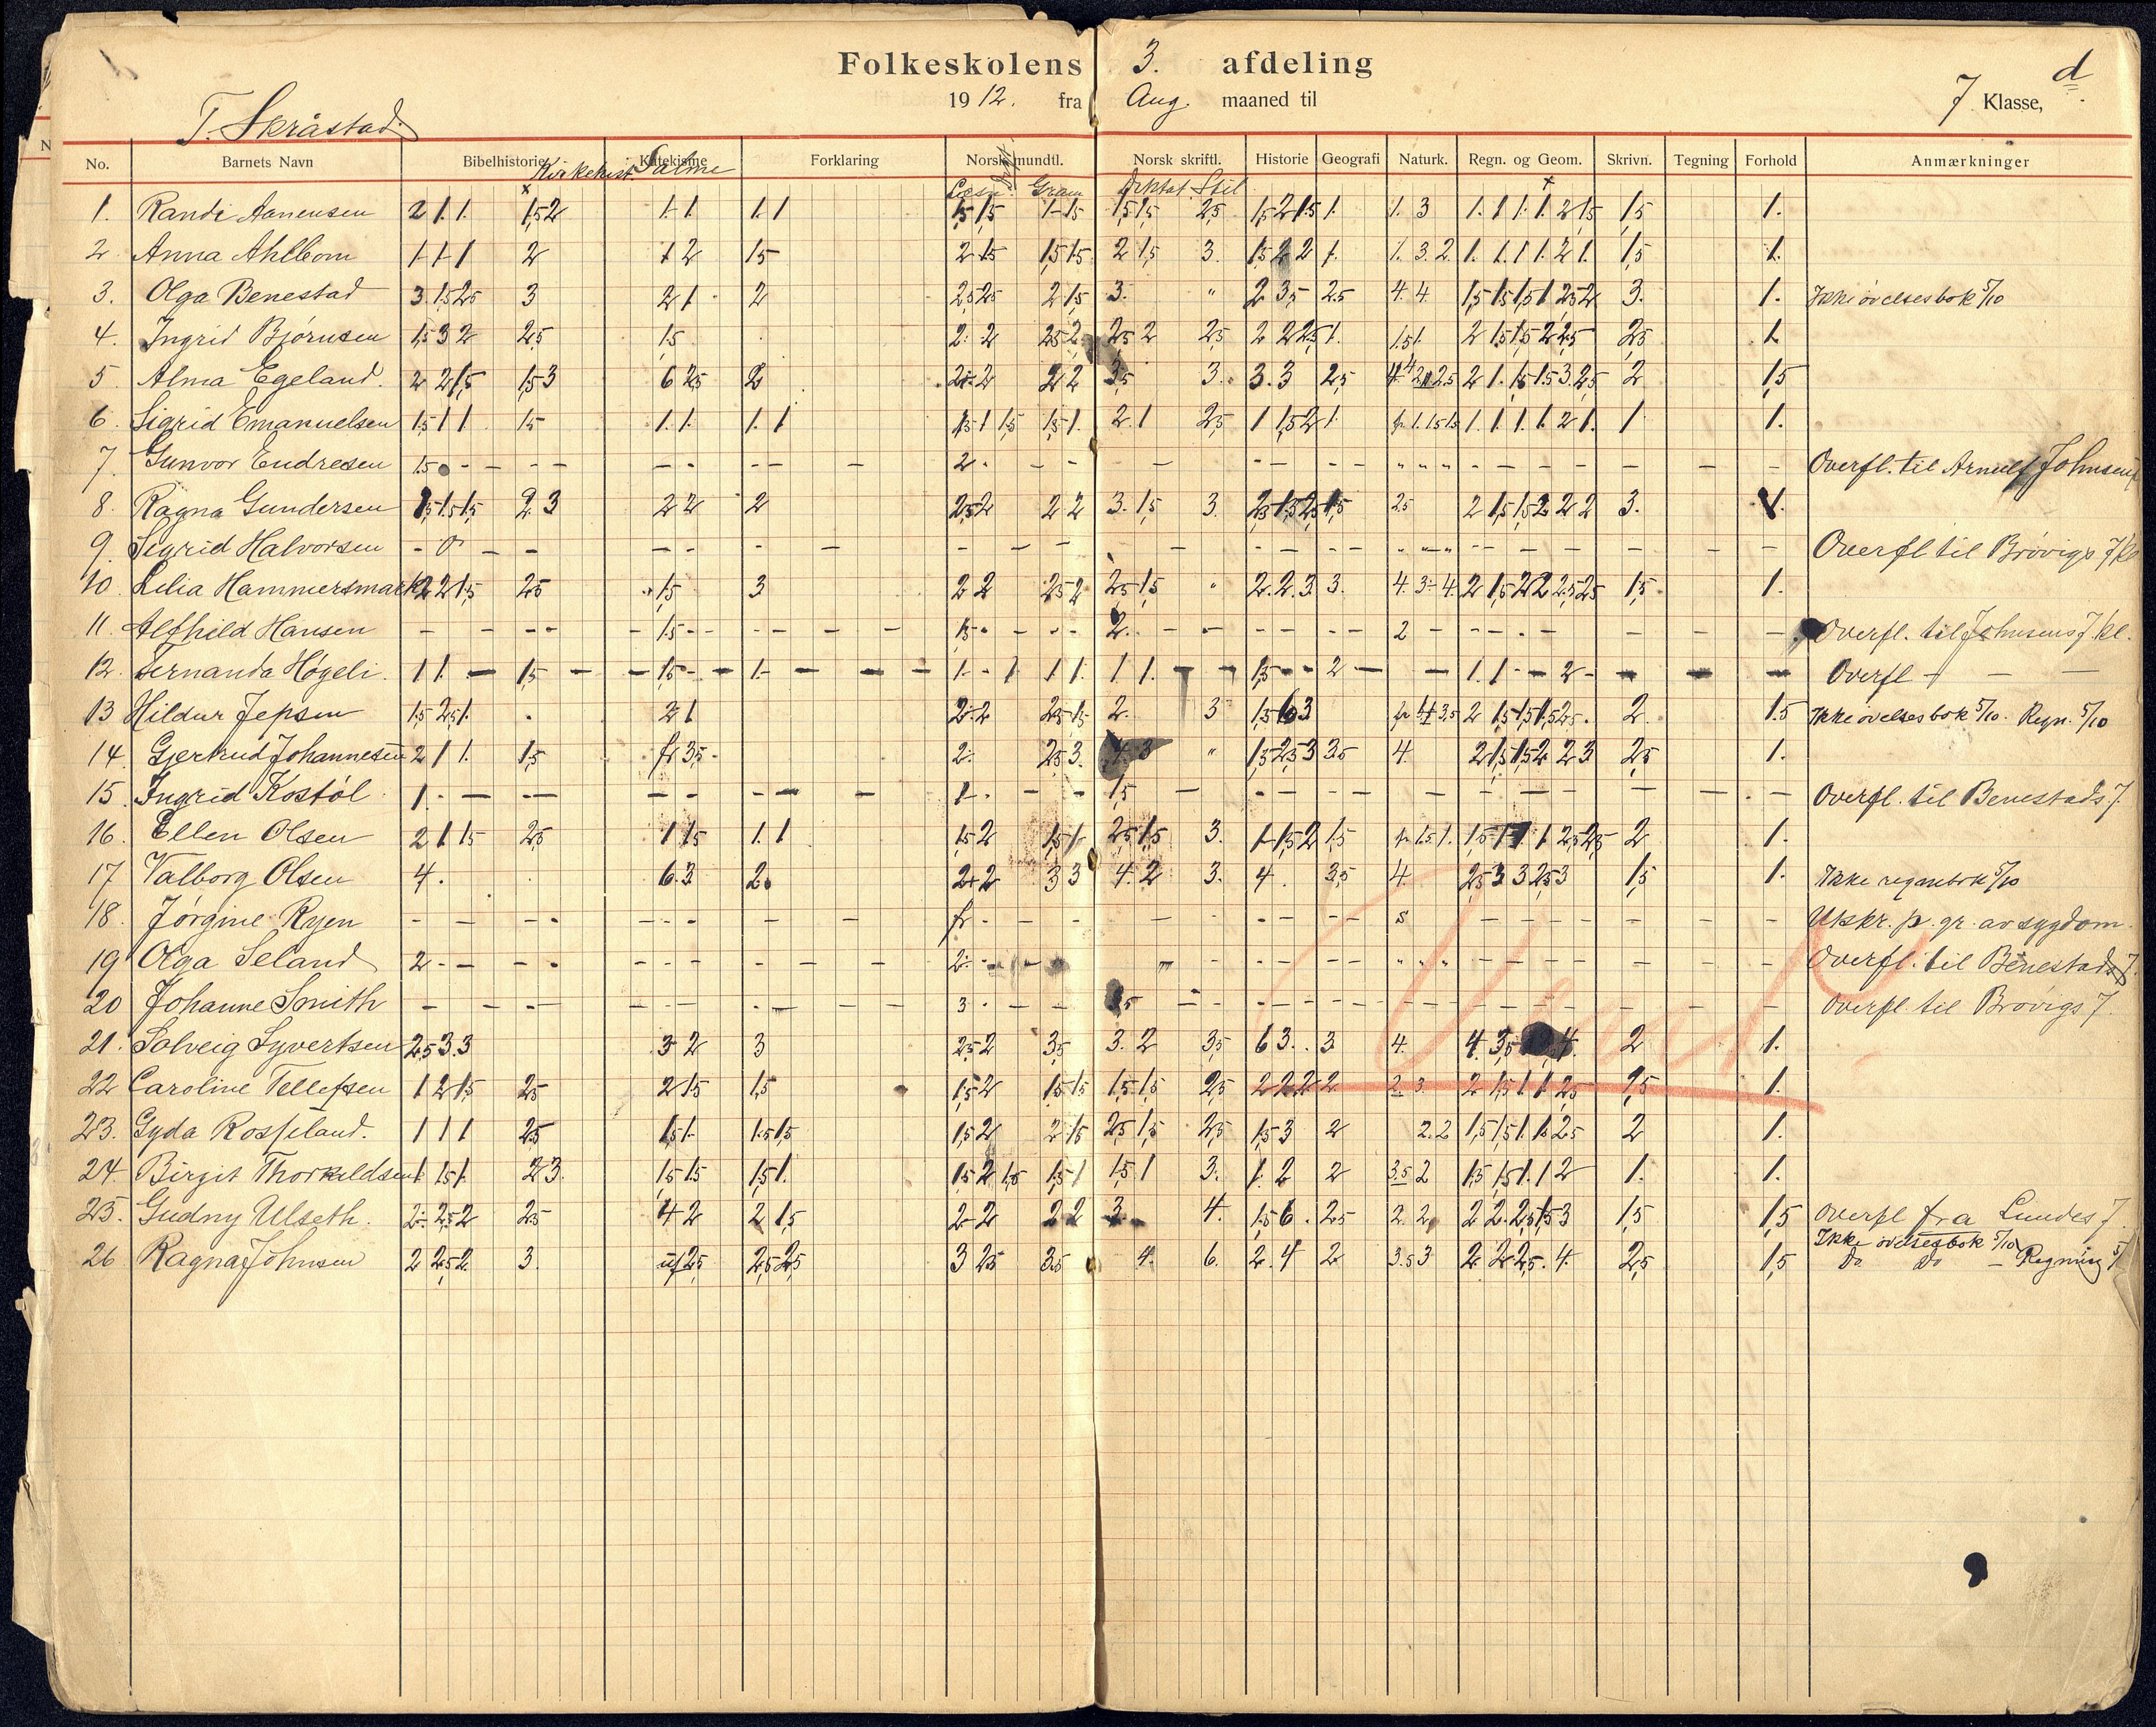 Folkeskolens 3. afdeling
T. Skråstad 1912. fra Aug. maaned til 7 Klasse, d
No. Barnets Navn Bibelhistorie Kirkehist. Katekisme Salme Forklaring Norsk mundtl. Norsk skriftl. Historie Geografi Naturk. Regn. og Geom. Skrivn. Tegning Forhold Anmærkninger
Læsn. Gram Diktat Stil
1. Randi Aanensen 2 1 1. 1,5 2 1. 1 1. 1 1,5 1,5 1 1,5 1,5 1,5 2,5 1,5 2 1.5 1. 1. 3 1. 1 1. 1. 2 1,5 1,5 1.
2. Anna Ahlbom 1 1 1 2 1 2 1,5 2 1,5 1,5 1,5 2 1,5 3. 1,5 2 2 1. 1. 3. 2. 1. 1. 1 1. 2 1. 1,5 1.
3. Olga Benestad 3. 1,5 2,5 3 2 1 2 2,5 2,5 2 1,5 3. " 2 3,5 2,5 4. 4. 1,5 1,5 1,5 1 2,5 2 3. 1. Ikke øvelsesbok 5/10
4. Ingrid Bjørnsen 1,5 3 2 2,5 1,5 2. 2 2,5 2 2,5 2 2,5 2 2 2,5 1. 1.5 1. 2 1,5 1,5 2 2,5 2,5 1.
5. Alma Egeland. 2 2 1,5 1,5 3 6 2,5 2 2 2 2 2 3,5 3. 3. 3 2,5 2 1. 1,5 1.5 3. 2,5 2 1,5
6. Sigrid Emanuelsen 1,5 1 1 1,5 1. 1. 1. 1 1,5 1 1,5 1,5 1. 2. 1 2,5 1 1,5 2 1. fr 1. 1.5 1.5 1. 1. 1. 1. 2 1. 1 1.
7. Gunvor Endresen 1,5 - - - - 2. - - - Overfl. til Arnulf Johnsen
8. Ragna Gundersen 1,5 1.5 1,5 2 3 2 2 2 2,5 2 2 2 3. 1,5 3. 2,5 1,5 2,5 1,5 2.5 2 1,5 1,5 2 2 2 3. 1.
9. Sigrid Halvorsen - 0 - - - - - - Overfl til Brøvigs 7 kl
10. Lilia Hammersmark 2 2 1,5 2,5 1,5 3 2 2 2,5 2 2,5 1,5 " 2. 2. 3. 3. 4. 3 4. 2 1,5 2 2 2,5 2,5 1,5 1.
11. Alfhild Hansen - - - - - 1,5 - - - - 1,5 - - - 2. - - - 2 - - - Overfl. til Johnsens 7. kl.
12. Fernanda Høgeli. 1 1. - 1,5 - - 1,5 - - 1 - - - - 1 - 1 1 1. 1 1. - - 1,5 - - 2 - - 1. 1 - 2 - - - - Overfl - - -
13 Hildur Jepsen 1,5 2,5 1. 2 1 2. 2 2,5 1,5 2. 3 1,5 6 3 fr 4 3,5 2 1,5 1,5 1,5 2,5. 2. 1.5 Ikke øvelsesbok 5/10. Regn. 5/10
14. Gjertrud Johannesen 2 1 1. 1,5 fr 3,5 - 2. 2,5 3. 4. 3 " 1,5 2,5 3 3,5 4. 2 1,5 1,5 2 2 3 2,5 1.
15. Ingrid Kostøl 1. - - - - - - - 1 - - - 1,5 - - - Overfl. til Benestads 7.
16. Ellen Olsen 2 1 1,5 2,5 1 1,5 1. 1 1,5 2 1,5 1 2,5 1,5 3. 1 1,5 2 1,5 fr 1.5 1. 1,5 1 1. 1 2,5 2,5 2 1.
17. Valborg Olsen 4. 6. 3 2. 2 2 3 3 4. 2 3. 4. 3,5 4. 2,5 3 3 2,5 3 1,5 1. Ikke regnebok 5/10
18. Jørgine Ryen - - - - fr - - - s - - - Utskr. p. gr. av sygdom.
19 Olga Seland 2 - - - - - - - 2. - - - Overfl. til Benestads 7.
20 Johanne Smith - - - - - - - 3 - - - Overfl til Brøvigs 7.
21. Solveig Syvertsen 2,5 3. 3 3 2 3 2,5 2 3,5 3. 2 3,5 6 3. 3 4. 4. 3,5 4. 2 1.
22 Caroline Tellefsen 1 2 1,5 2,5 2 1,5 1,5 1,5 2 1,5 1,5 1,5 1,5 2,5 2 2 2 2 2. 3. 2 1,5 1 1 2,5 1,5 1.
23. Gyda Rosseland. 1 1 1 2,5 1,5 1. 1.5 1,5 1,5 2 2 1,5 2,5 1,5 2,5 1,5 3 2 2.2 1,5 1,5 1. 1. 2,5 2 1.
24. Birgit Thorkildsen 1. 1.5 1. 2 3. 1,5 1.5 1,5 1. 1,5 2 1,5 1,5 1 1,5 1 3. 1. 2 2 3.5 2 1,5 1,5 1. 1 2 1. 1.
25. Gudny Ulseth. 2. 2,5 2 2,5 4 2 2 1,5 2 2 2 2 3. 4. 1,5 6. 2,5 2. 2 2 2. 2,5 1,5 3 1,5 1,5 Overfl fra Lundes 7.
Ikke øvelsesbok 5/10
26 Ragna Johnsen 2 2,5 2. 3. uf 2,5 2,5 2,5 3 2,5 3,5 4. 6. 2. 4 2 3.5 3 2. 2 2,5. 4. 2,5 1,5 Do Do - Regning 5/